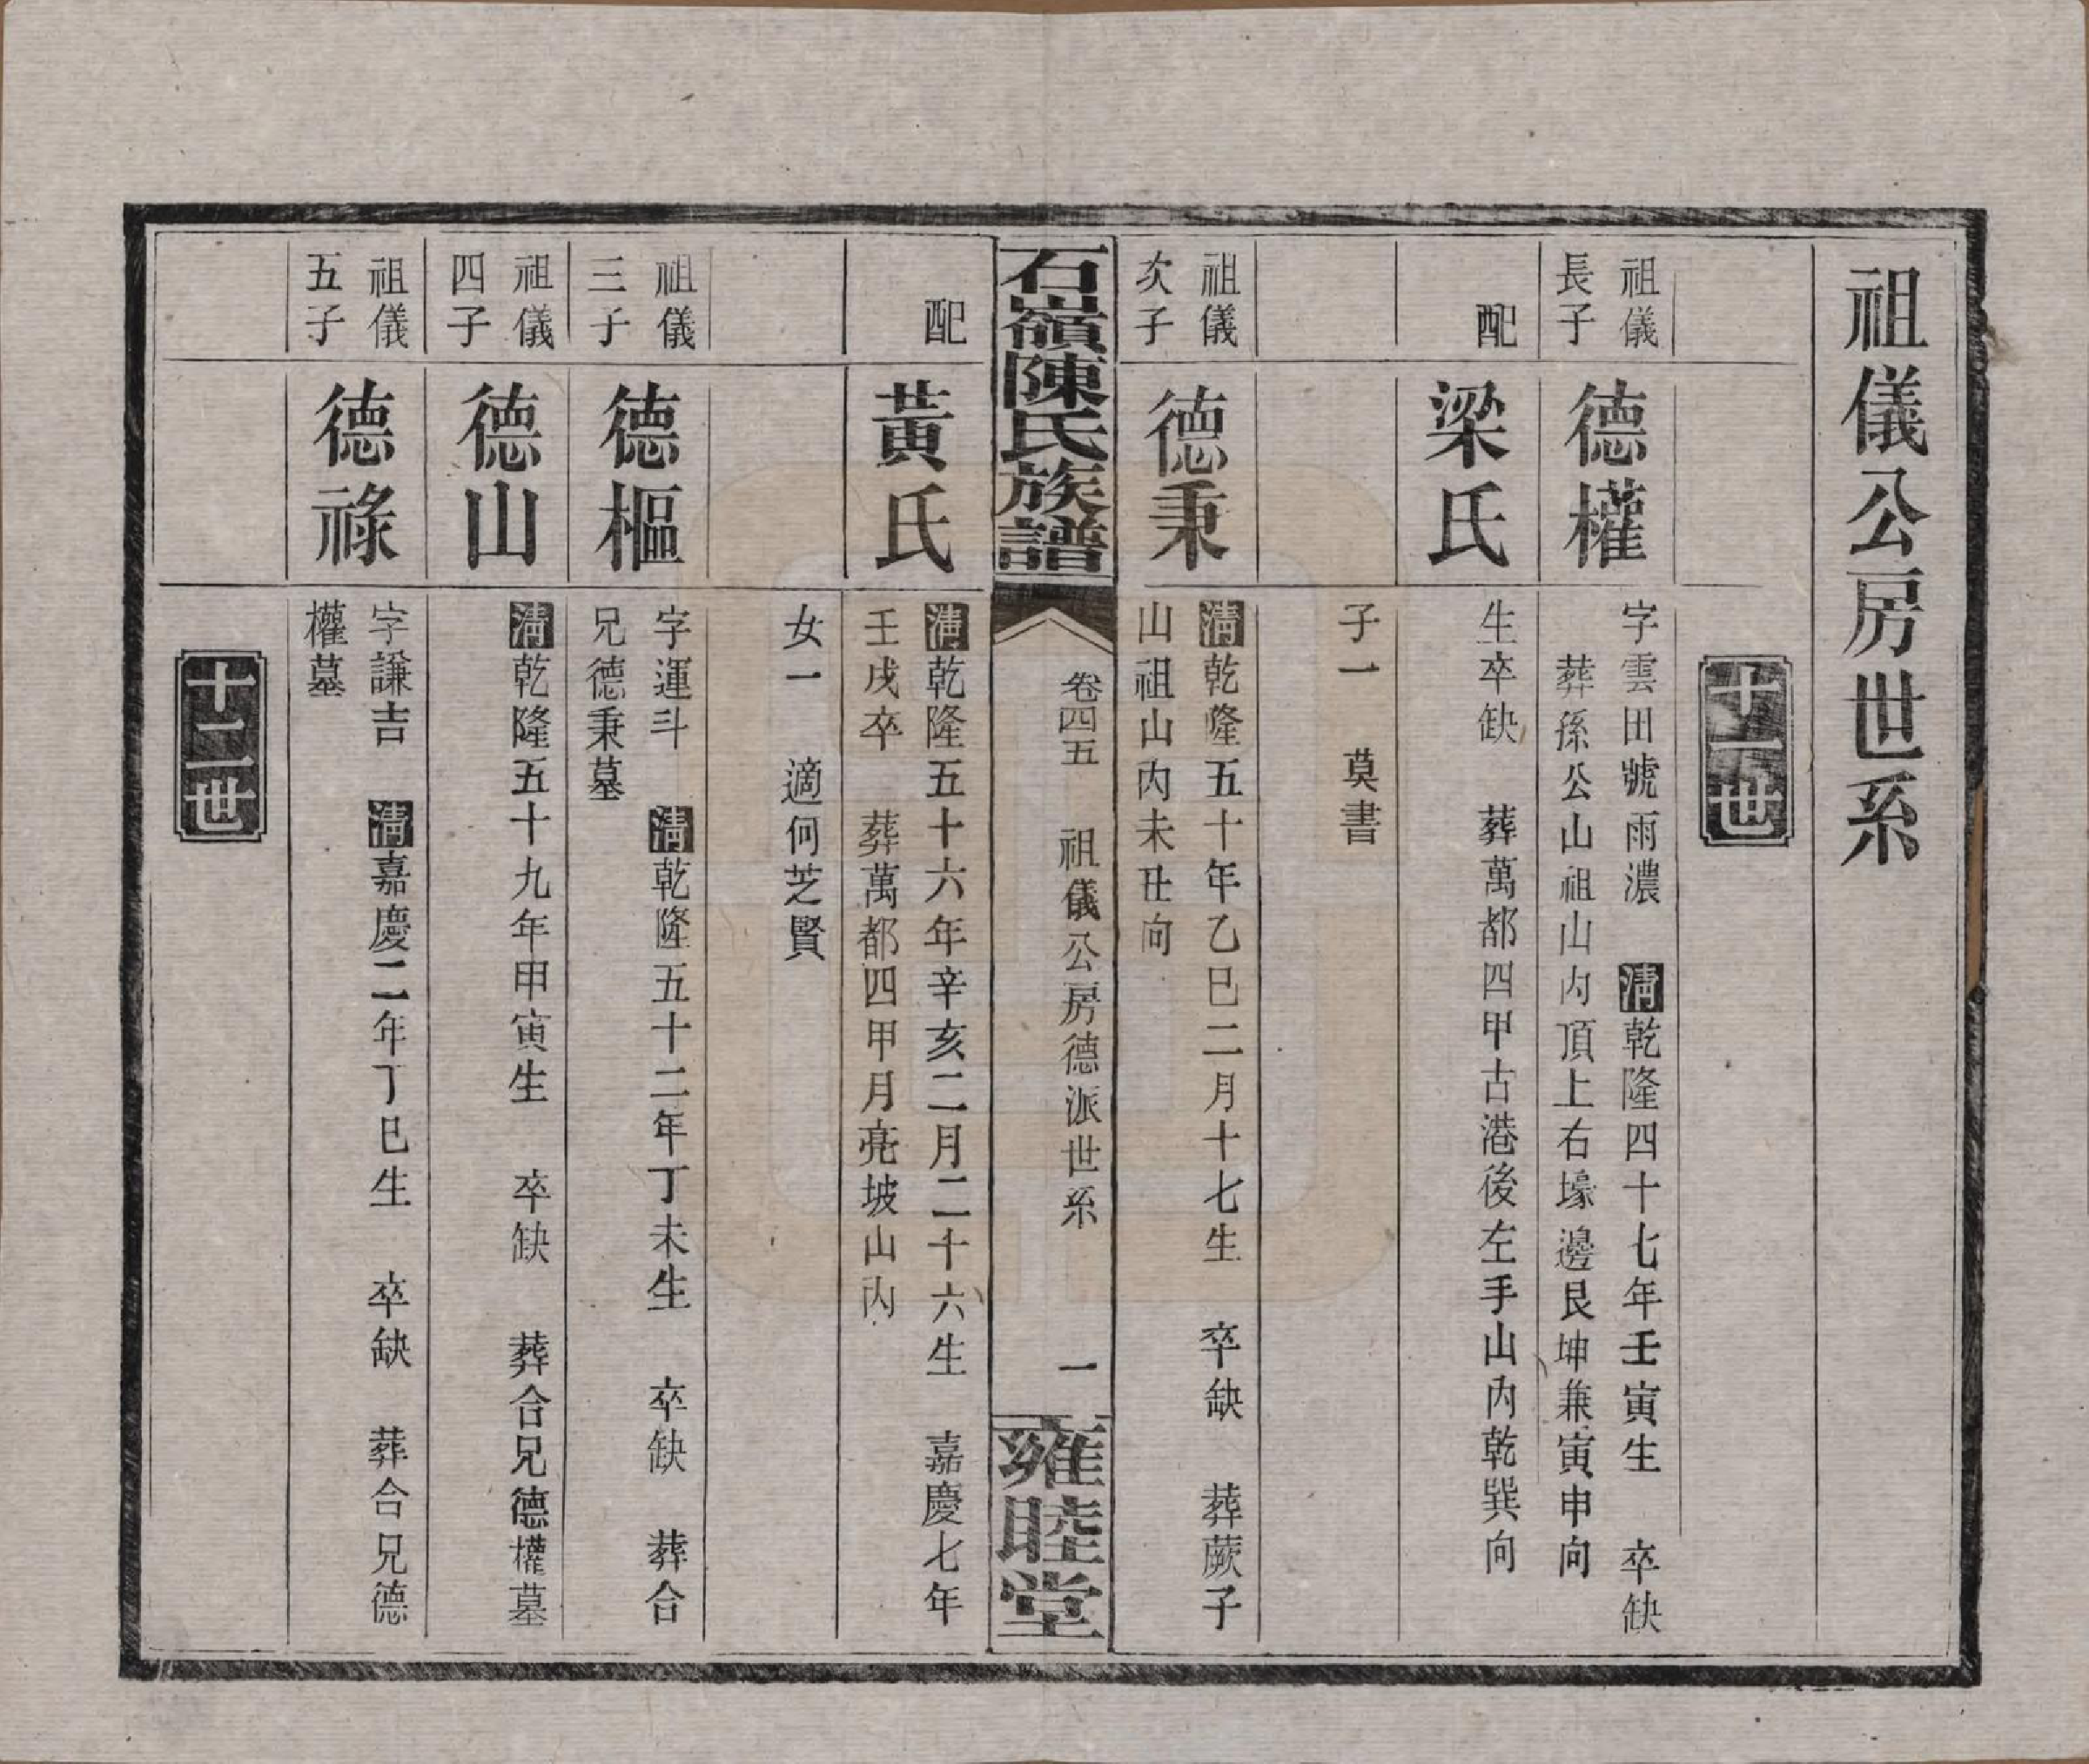 祖儀公房世系
十一世
祖儀
長子
德權
字雲田號雨濃　清乾隆四十七年壬寅生　卒缺
葬孫公山祖山內頂上右壕邊艮坤兼寅申向
配
梁氏
生卒缺　葬萬都四甲古港後左手山內乾巽向
子一　莫書
祖儀
次子
德秉
清乾隆五十年乙巳二月十七生　卒缺　葬蕨子
山祖山內未丑向
石嶺陳氏族譜
卷四五　祖儀公房德派世系　一
雍睦堂
配
黃氏
清乾隆五十六年辛亥二月二十六生　嘉慶七年
壬戌卒　葬萬都四甲月亮坡山內
女一　適何芝賢
祖儀
三子
德樞
字運斗　清乾隆五十二年丁未生　卒缺　葬合
兄德秉墓
祖儀
四子
德山
清乾隆五十九年甲寅生　卒缺　葬合兄德權墓
祖儀
五子
德祿
字謙吉　清嘉慶二年丁巳生　卒缺　葬合兄德
權墓
十二世